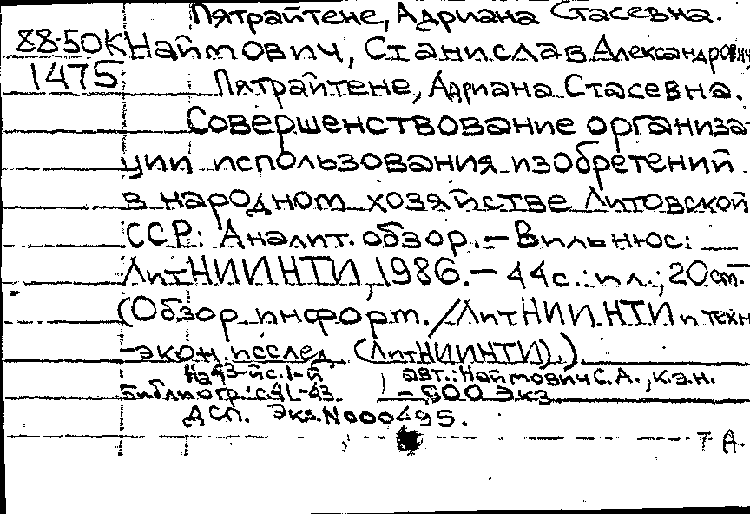 Пятрайтене, Адриана Стасевна.
88-50К Наймович, Станислав Александрович
1475 Пятрайтене, Адриана Стасевна.
Совершенствование организа-
ции использования изобретений
в народном хозяйстве Литовской
ССР: Аналит. обзор. – Вильнюс:
ЛитНИИНТИ, 1986. – 44с.: ил.; 20см.
(Обзор. информ. / ЛитНИИНТИ и техн.
-экон. исслед. (ЛитНИИНТИ).)
На 43-й с. 1-й авт.: Наймович С.А., к.э.н.
Библиогр.: с. 41-43. – 800 экз.
ДСП. Экз. N000495.
Т А.